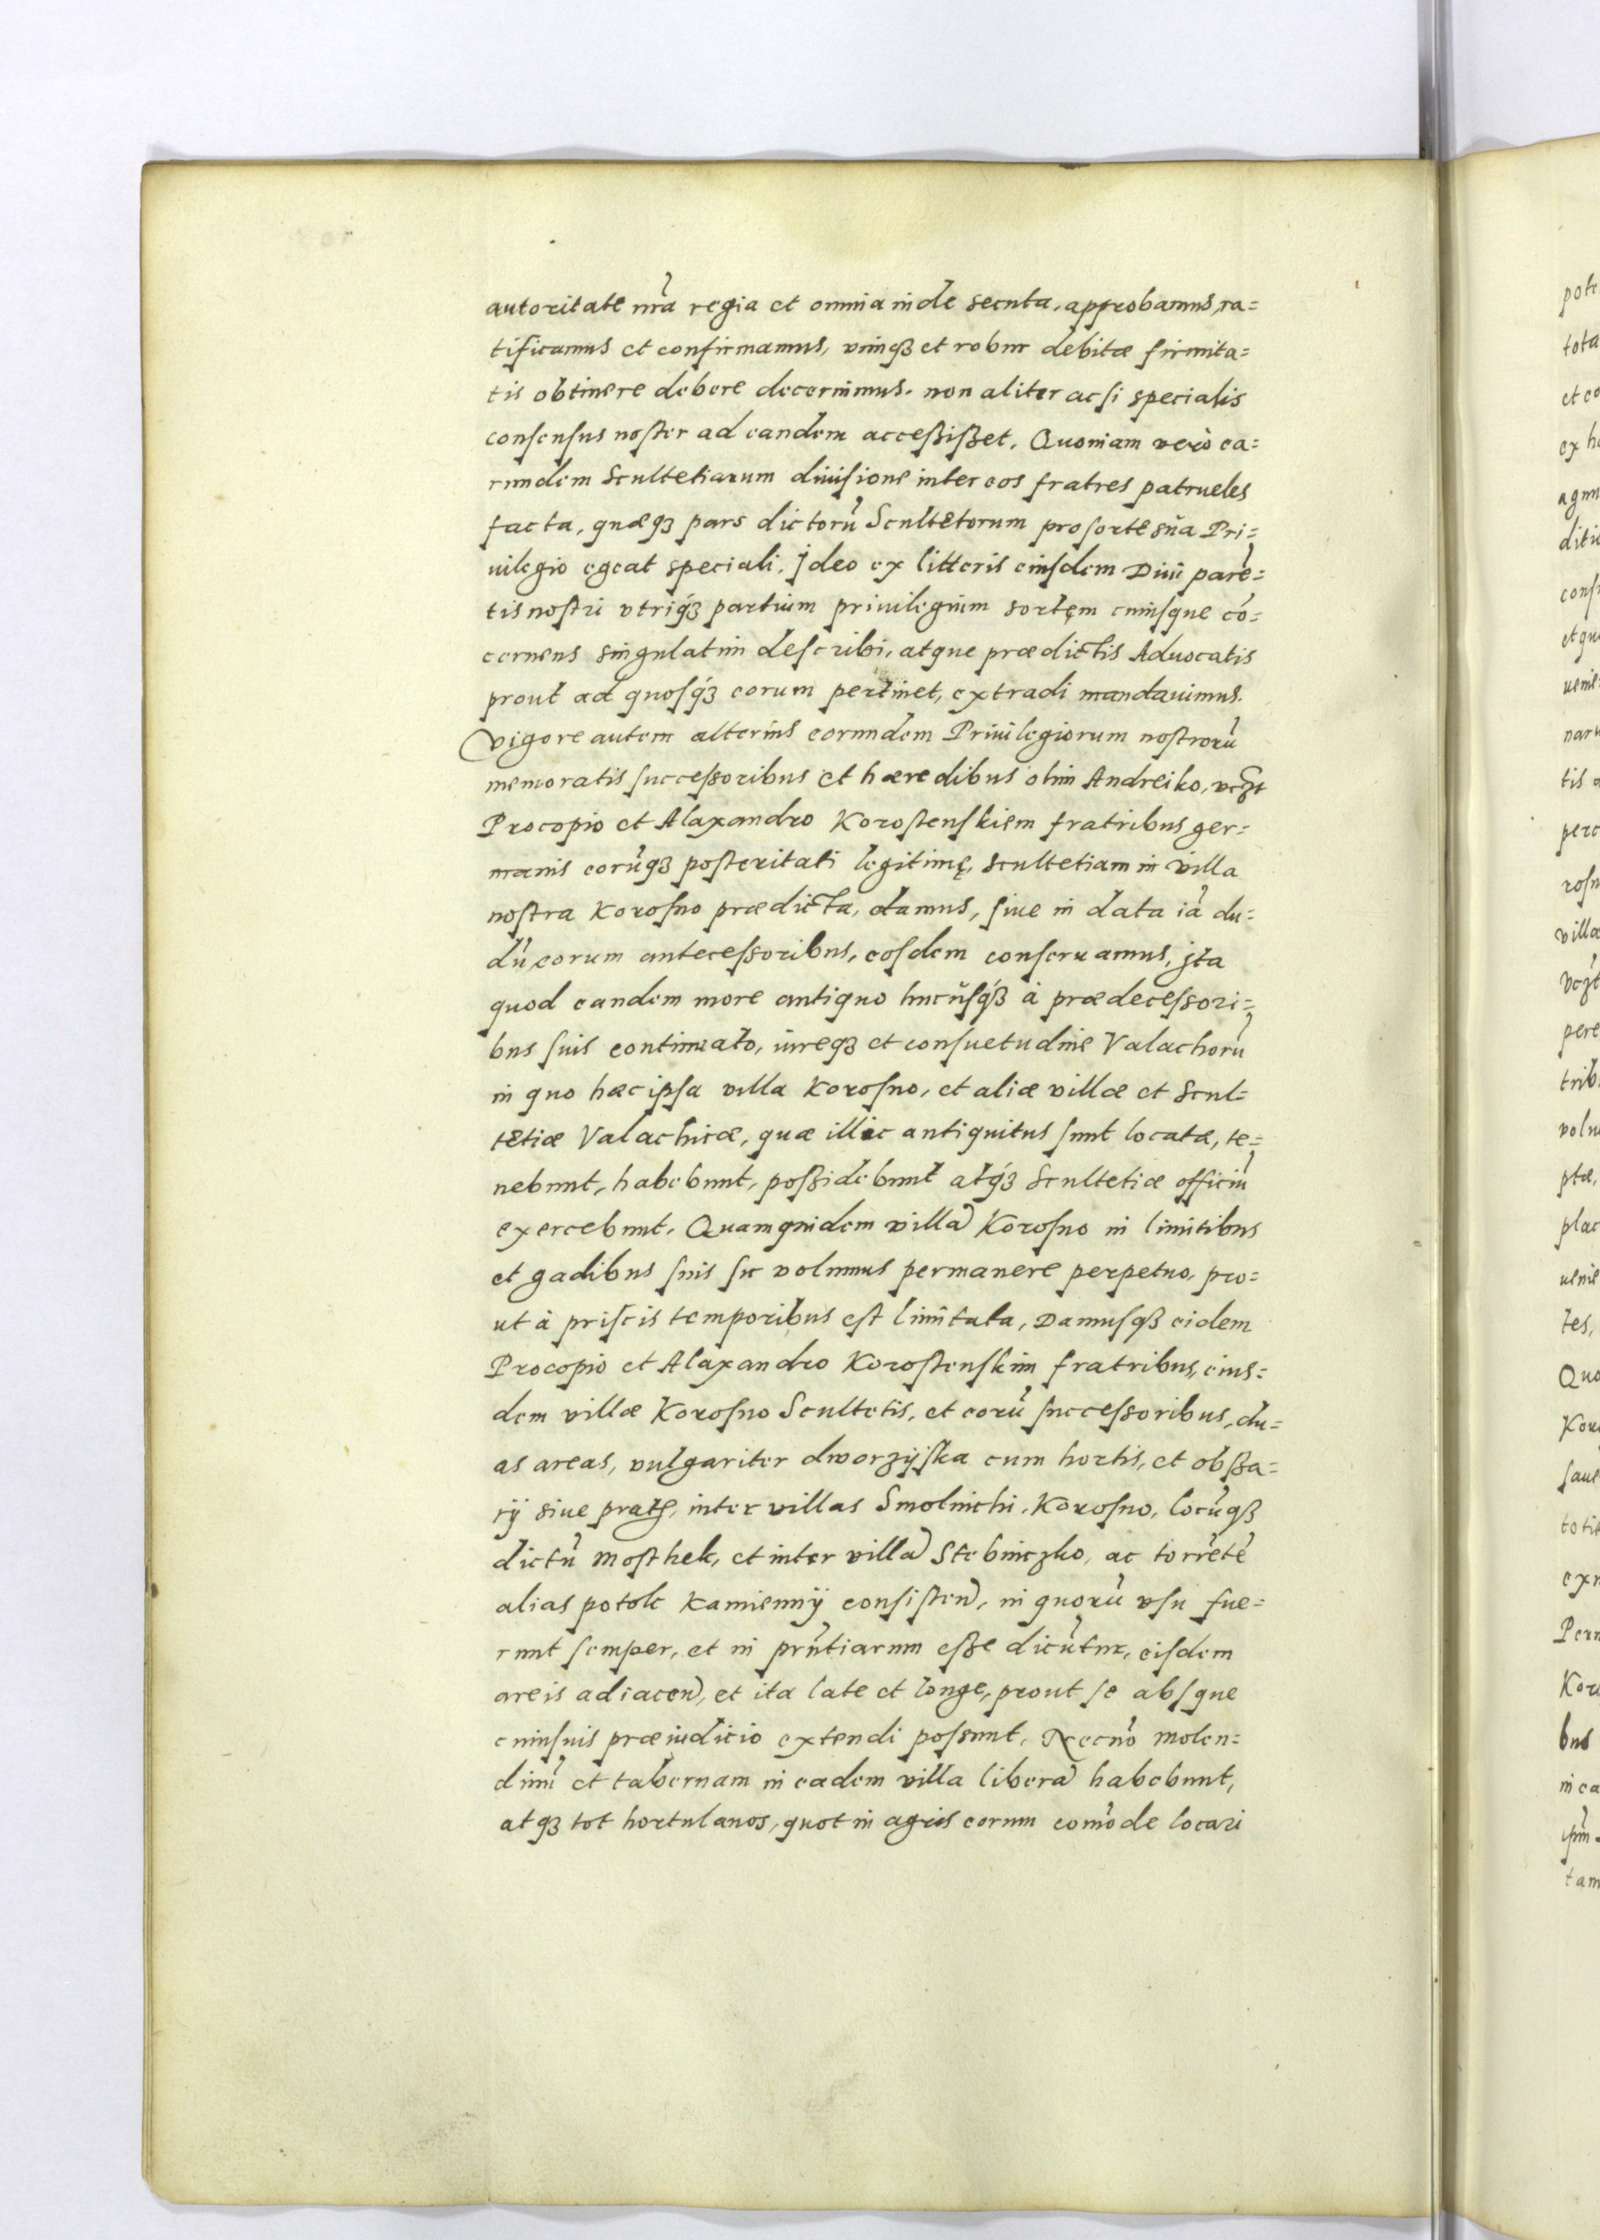 autoritate nr̃a regia et omnia inde secuta, approbamus, ra=
tificamus et confirmamus, vimq3 et robur debitæ firmita=
tis obtinere debere decernimus. non aliter acsi specialis
consensus noster ad eandem accessisset. Quoniam verò ea=
rundem Scultetiarum diuisione inter eos fratres patrueles
facta, quæq3 pars dictorũ Scultetorum pro sorte sũa Pri=
uilegio egeat speciali. Jdeo ex litteris eiusdem Diui parẽ=
tis nostri vtriq́3 partium priuilegium sortem cuiusque cõ=
cernens singulatim describi, atque prædictis Aduocatis
prout ad quosq́3 eorum pertinet, extradi mandauimus.
Vigore autem alterius eorundem Priuilegiorum nostrorũ
memoratis successoribus et hæredibus olim Andreiko, vcz̃t
Procopio et Alaxandro Korostenskiem fratribus ger=
manis eorũq3 posteritati legitimę, scultetiam in villa
nostra Korosno prædicta, damus, siue in data iã du=
dũ eorum antecessoribus, eosdem conseruamus, jta
quod eandem more antiquo hucũsq́3 à prædecessori=
bus suis continuato, iureq3 et consuetudine Valachorũ
in quo hæc ipsa villa Korosno, et aliæ villæ et Scul=
tetiæ Valachicæ, quæ illic antiquitus sunt locatæ, te=
nebunt, habebunt, possidebunt atq́3 Scultetiæ officiũ
exercebunt. Quamquidem villã Korosno in limitibus
et gadibus suis sic volumus permanere perpetuo, pro=
ut à priscis temporibus est limitata, Damusq3 eidem
Procopio et Alaxandro Korostenskim fratribus, eius=
dem villæ Korosno Scultetis, et eorũ successoribus, du=
as areas, vulgariter dworzÿska cum hortis, et obsza=
rÿ siue prat, inter villas Smolnichi, Korosno, locũq3
dictũ Mosthek, et inter villã Stebniczko, ac torrẽtẽ
alias potok Kamiennÿ consisteñ, in quorũ vsu fue=
runt semper, et in prñtiarum esse dicũtur, eisdem
areis adiaceñ, et ita late et longe, prout se absque
cuiusuis præiudicio extendi possunt, Necnõ molen=
dinũ et tabernam in eadem villa liberã habebunt,
atq3 tot hortulanos, quot in agris eorum com̃ode locari